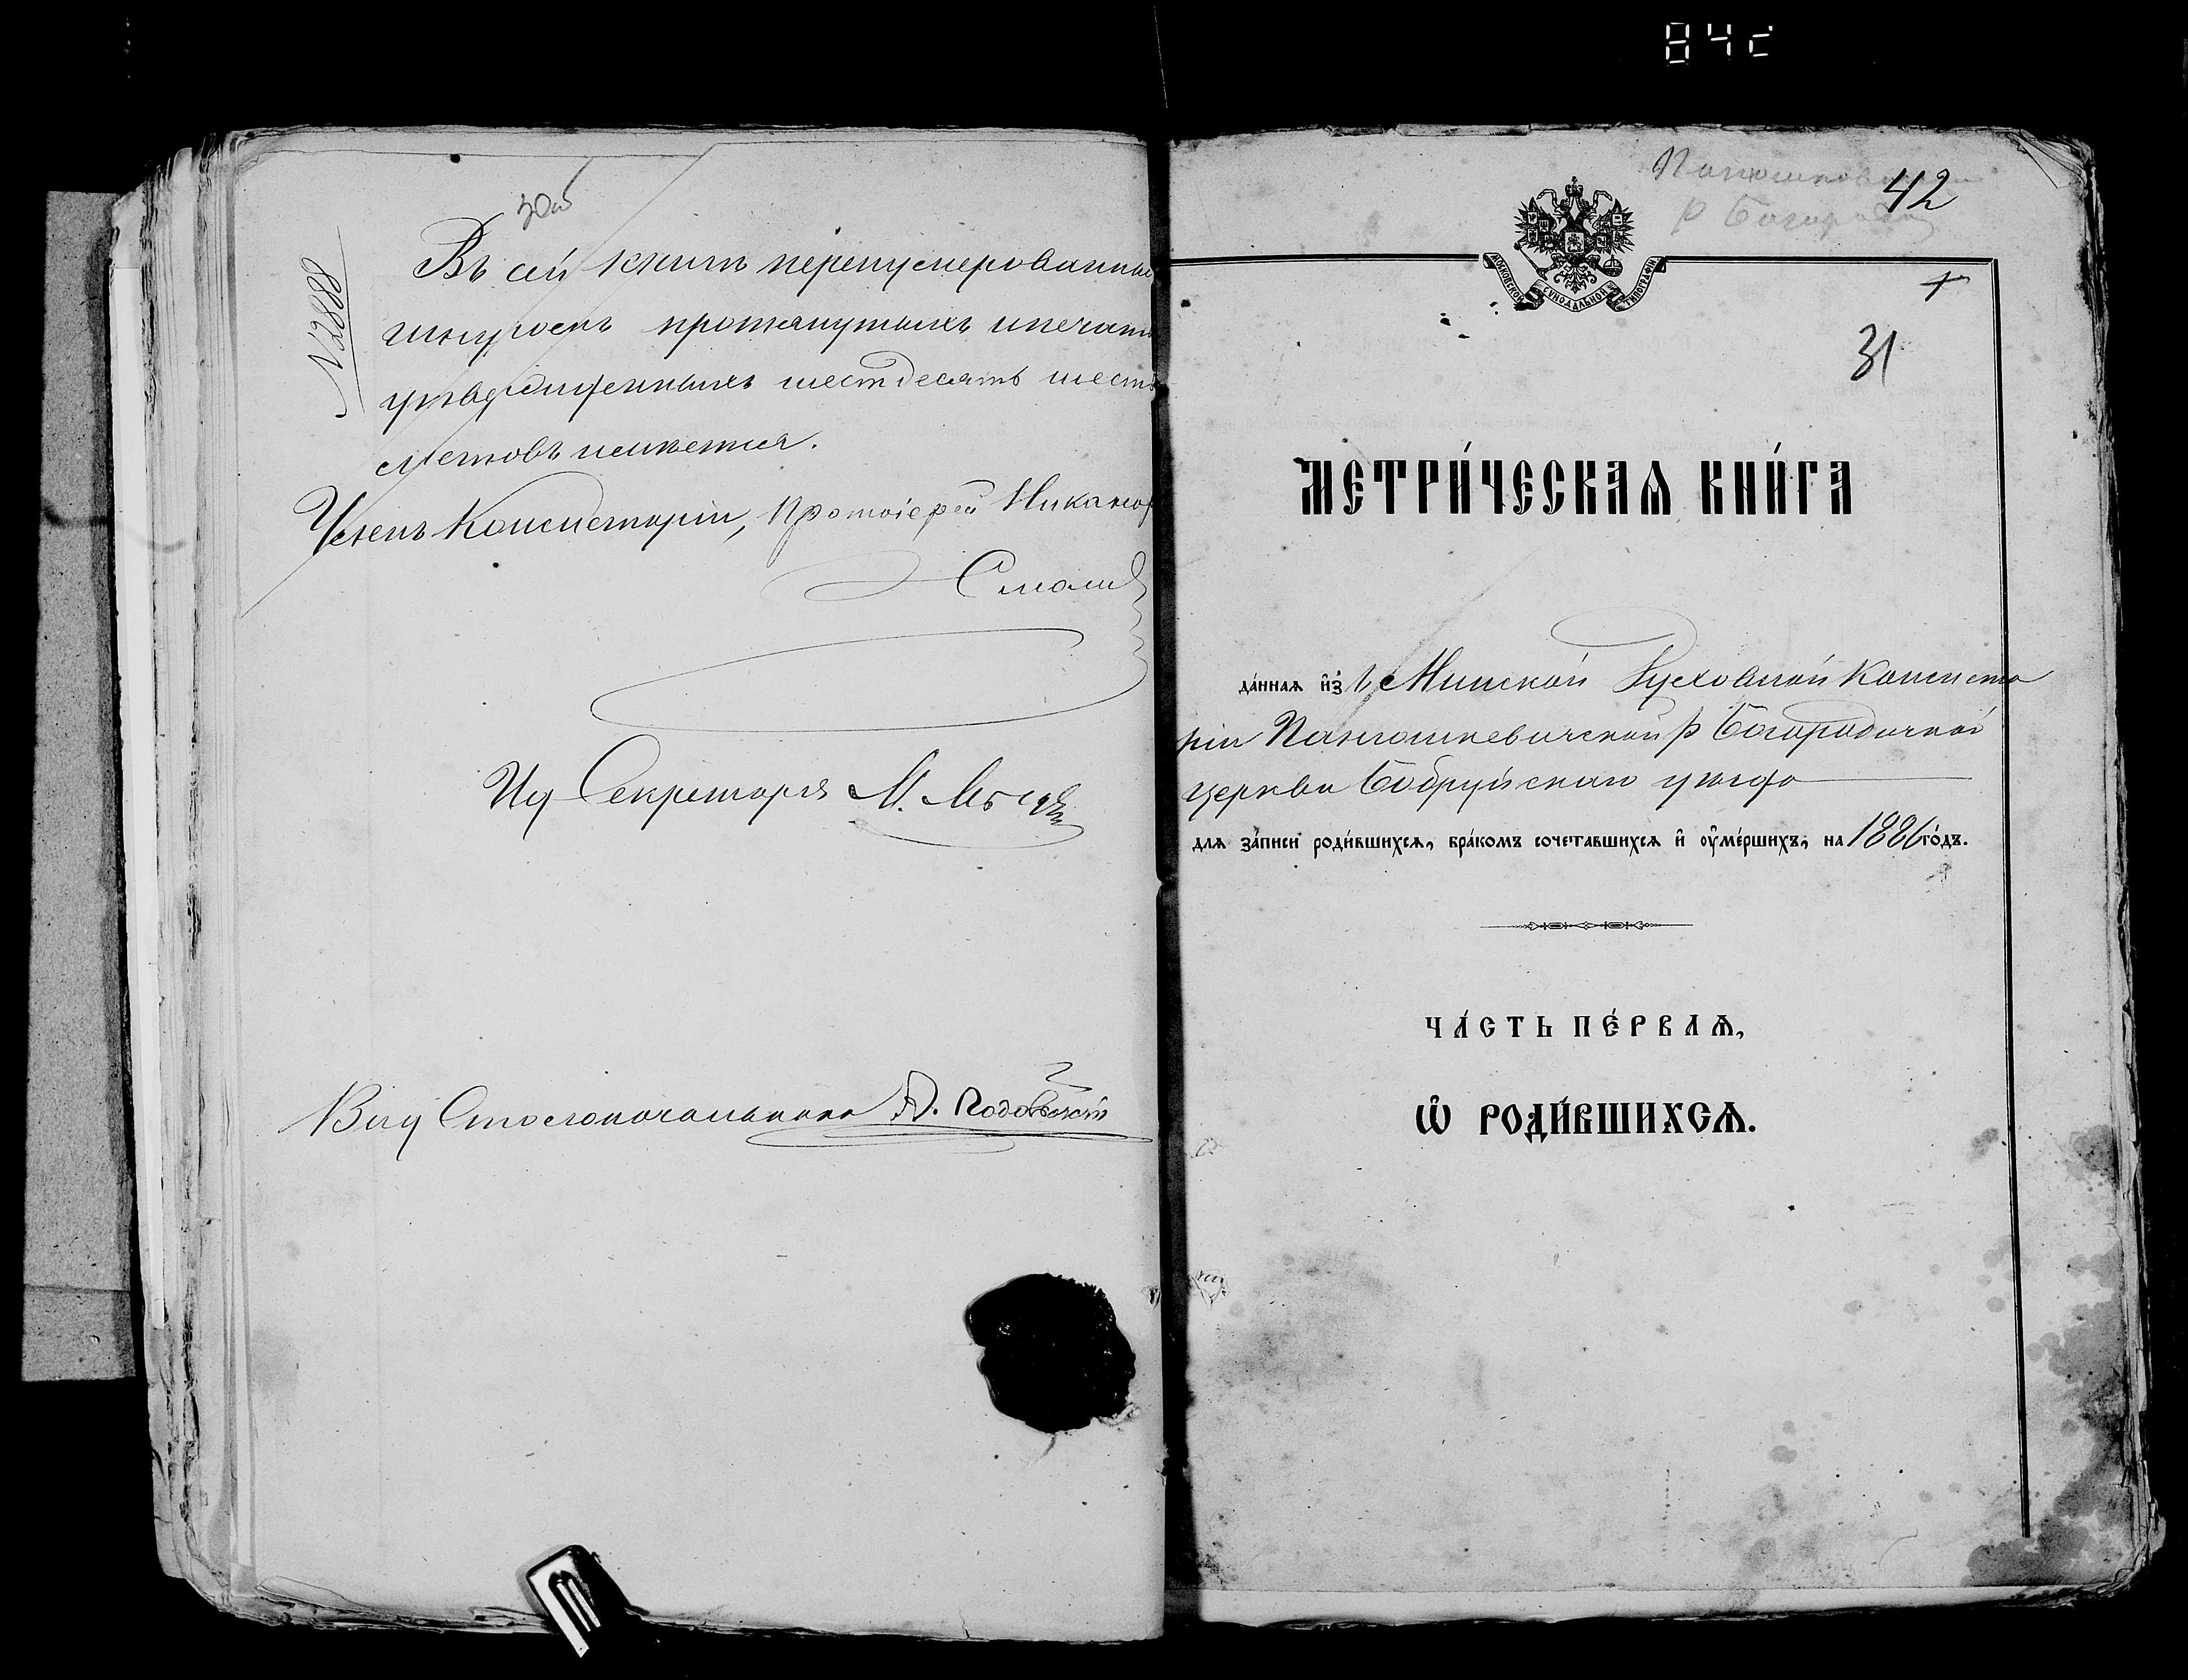 84c
30об
№ 2888
Въ сей книгѣ перенумерованныхъ
шнуромъ протянутыхъ и печатью
утвержденныхъ шестдесять шесть
листовъ имѣется.
Членъ Консисторіи, Протоіерей Никанор
Смолич
Ид Секретаря М.
Вид Столоначальника А.
42
Р Богород
МОСКОВСКОЙ СѴНОДАЛЬНОЙ ТИПОГРАФІИ
31
МЕТРИ́ЧЕСКАѦ КНИ́ГА
да́ннаѧ и҆з̾ Минской Духовной Консисто
ріи Панюшкевичской Р Богородичной
церкви Бобруйскаго уѣзда
длѧ за́писи роди́вшихсѧ, бра́комъ сочета́вшихсѧ и҆ оу҆ме́ршихъ, на 1886 го́дъ.
ЧА́СТЬ ПЕ́РВАѦ,
Ѡ҆ РОДИ́ВШИХСѦ.